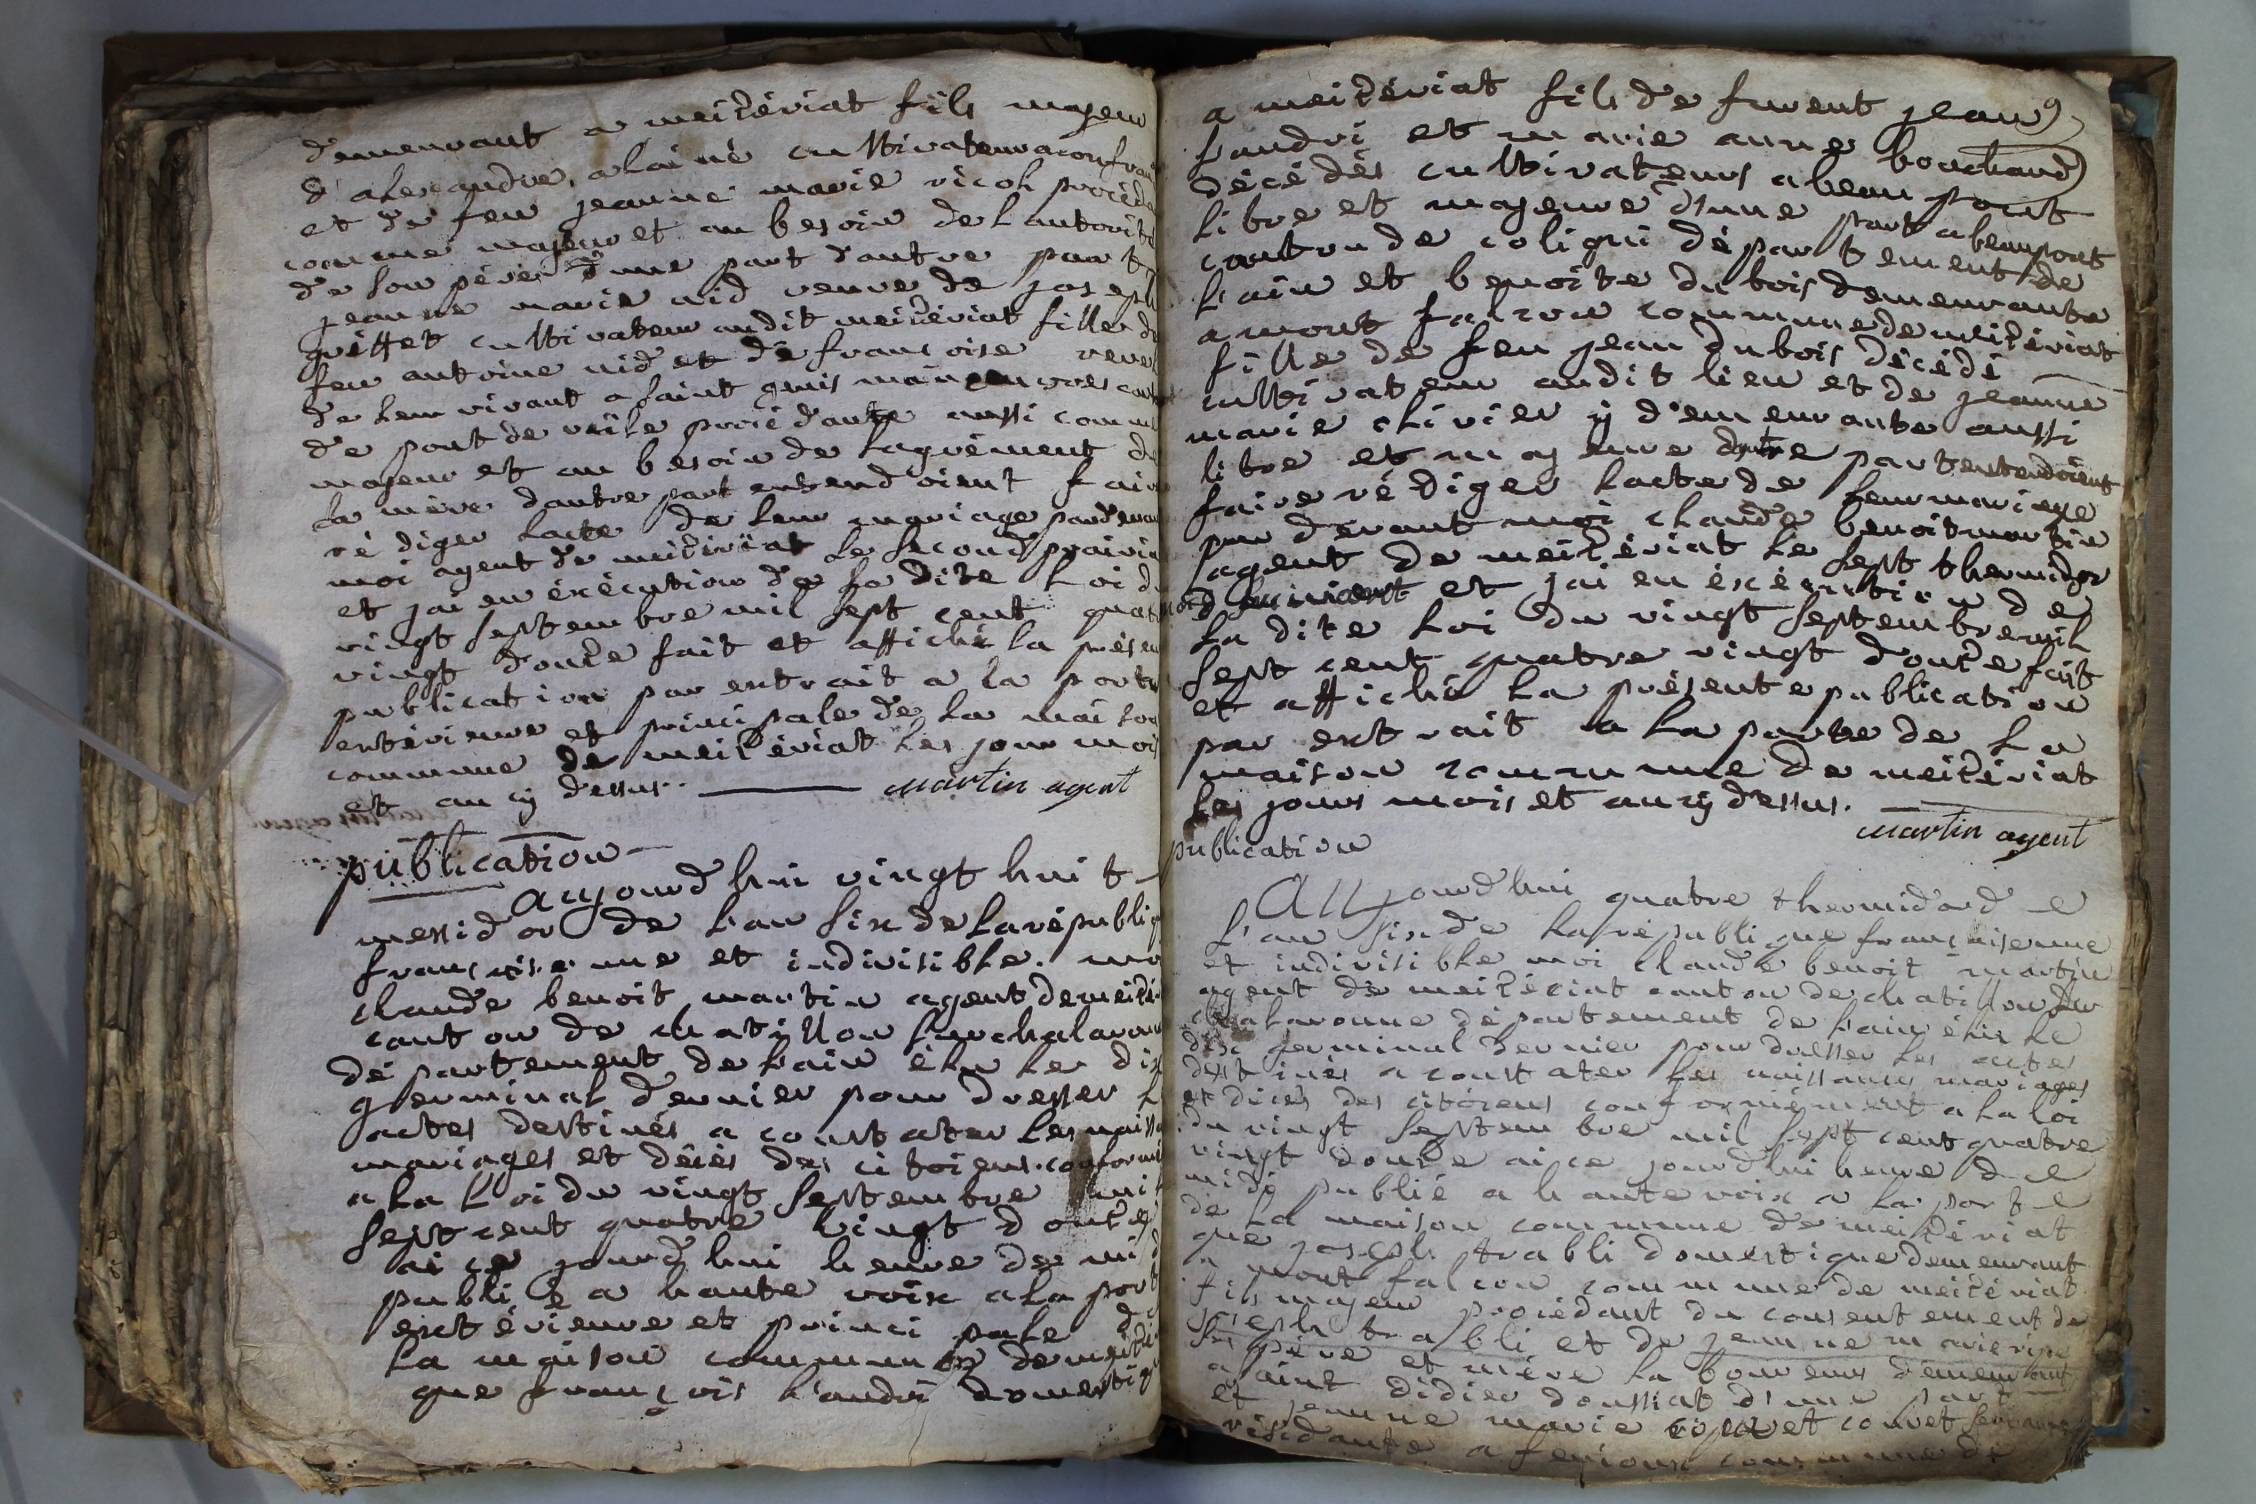 demeurant a meizériat fils majeur
d'alexandre alainé cultivateur a confran
et de feu jeanne marie vicol procéda
comme majeur et au besoin de l'autorité
de son père d'une part d'autre part
jeanne marie nid veuve de joseph
griffet cultivateur audit meizériat fille de
feu antoine nid et de françoise
de leur vivant a saint genis
de pont de veile procédante aussi comme
majeur et au besoin de lagrément de
la mère d'autre part entendoient faire
rédiger lacte de leur mariage pardevant
moi agent de meiziriat le second prairial
et jai en éxécution de la dite loi du
vingt septembre mil sept cent quatre
vingt douze fait et affiché la présen
publication par extrait a la porte
extérieure et principale de la maison
commune de meizériat les jour mois
et an cy dessus. martin agent
publication
aujourd'hui vingt huit
messidor de l'an six de la républiq
françoisenne et indivisible. moi
claude benoit martin agent de meizé
canton de chatillon sur chalaronne
département de l'ain élu le dix
germinal dernier pour dresser l
actes destinés a constater les naissa
mariages et décès des citoiens. conformé
a la loi du vingt septembre mil
sept cent quatre vingt douze
ai ce jourd'hui heure de midi
publié a haute voix a la porte
extérieure et principale de
la maison commune de meizé
que françois landri domestiq
a meizériat fils de furent jean
landri et marie anne bouchard
décédés cultivateurs a beaupont
libre et majeure d'une part a beaupont
canton de coligni département de
l'ain et benoite dubois demeurante
a mont falcon commune de meizériat
fille de feu jean dubois décédé
cultivateur audit lieu et de jeanne
marie chivier y demeurante aussi
libre et majeure d'autre part entendoient
faire rédiger lacte de leur mariage
par devant moi claude benoit martin
agent de meizériat le sept thermidor
et jai en éxécution de
la dite loi du vingt septembre mil
sept cent quatre vingt douze fait
et affiché la présente publication
par extrait a la porte de la
maison commune de meizériat
les jours mois et an cy dessus.
martin agent
publication
Aujourd'hui quatre thermidor de
l'an six de la république françaisenne
et indivisible moi claude benoit martin
agent de meizériat canton de chatillon sur
chalaronne département de l'ain élu le
dix germinal dernier pour dresser les actes
destinés a constater les naissances mariages
et décès des citoiens conformément a la loi
du vingt septembre mil sept cent quatre
vingt douze ai ce jourd'hui heure de
midi publié a haute voix a la porte
de la maison commune de meizériat
que joseph trabli domestique demeurant
a mont falcon commune de meizériat
fils majeur procédant du consentement de
joseph trabli et de jeanne marie
ses père et mère laboureurs demeurant
a saint didier doussiat d'une part
et jeanne marie couvet servante
résidante a fenioux commune de